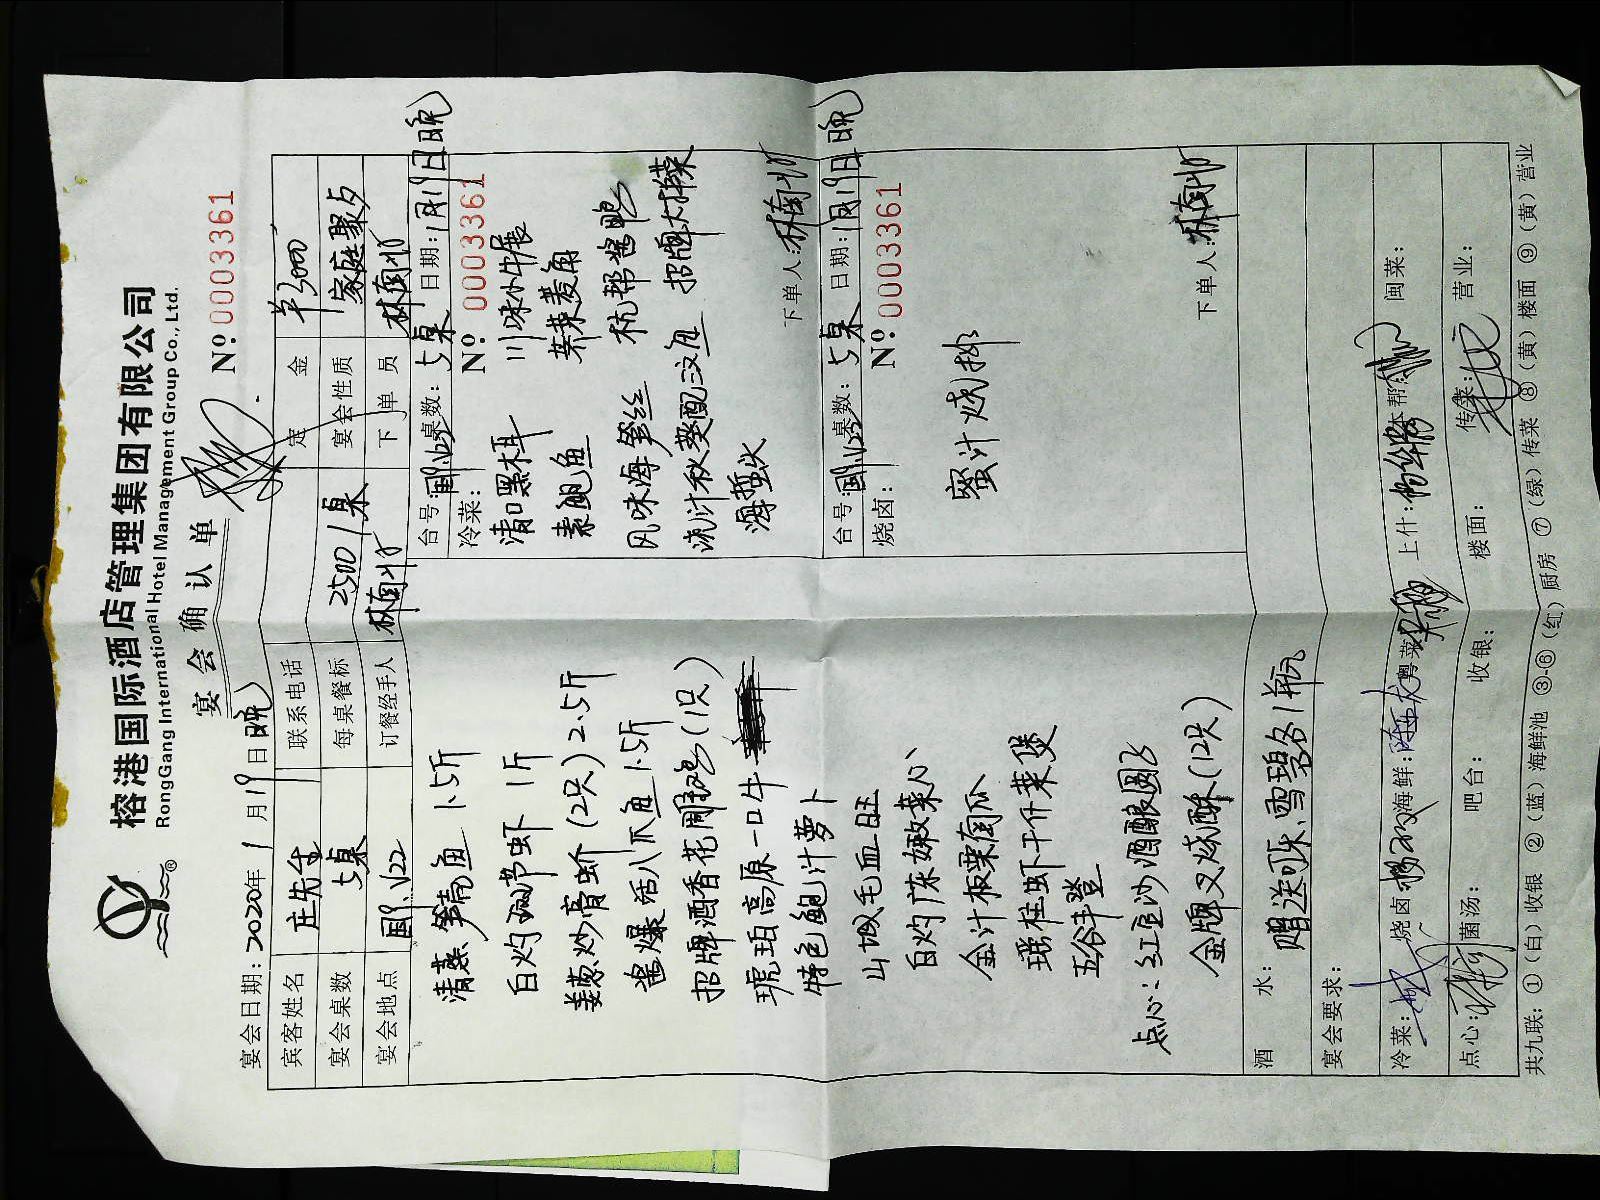 榕港国际酒店管理集团有限公司
RongGang International Hotel Management Group Co., Ltd.
宴会确认单
宴会日期：2020年 1 月 19 日晚 Nº 0003361
宾客姓名 庄先生 联系电话 定金
宴会桌数 5桌 每桌餐标 2500/桌 宴会性质 家庭聚
宴会地点 订餐经手人 林南 下单员 林南
清蒸笋壳鱼 1.5斤
白灼 节虾 1斤
姜葱炒膏蚧(2只)2.5斤
酱爆活八爪鱼1.5斤
招牌酒香花雕鸡(1只)
琥珀高原一口牛
特色鲍汁萝卜
山城毛血旺
白灼广东嫩菜心
金汁板栗南瓜
瑶柱虾干什菜煲
五谷丰登
点心：红豆沙酒酿圆子
金牌叉烧酥(12只)
台号： 桌数：5桌 日期：1月19日晚
冷菜： Nº 0003361
清口黑木耳 川味小牛展
素鲍鱼 荠菜菱角
风味海笋丝 杭帮酱鸭
捞汁秋葵配三文鱼 招牌大拌菜
海蜇头
下单人：林南
台号： 桌数：5桌 日期：1月19日晚
烧卤： Nº 0003361
蜜汁烧排
下单人：林南
酒水： 赠送可乐、雪碧各1瓶
宴会要求：
冷菜： 烧卤： 海鲜： 粤菜： 上什： 本帮： 闽菜：
点心： 菌汤： 吧台： 收银： 楼面： 传菜： 营业：
共九联：①（白）收银 ②（蓝）海鲜池 ③-⑥（红）厨房 ⑦（绿）传菜 ⑧（黄）楼面 ⑨（黄）营业